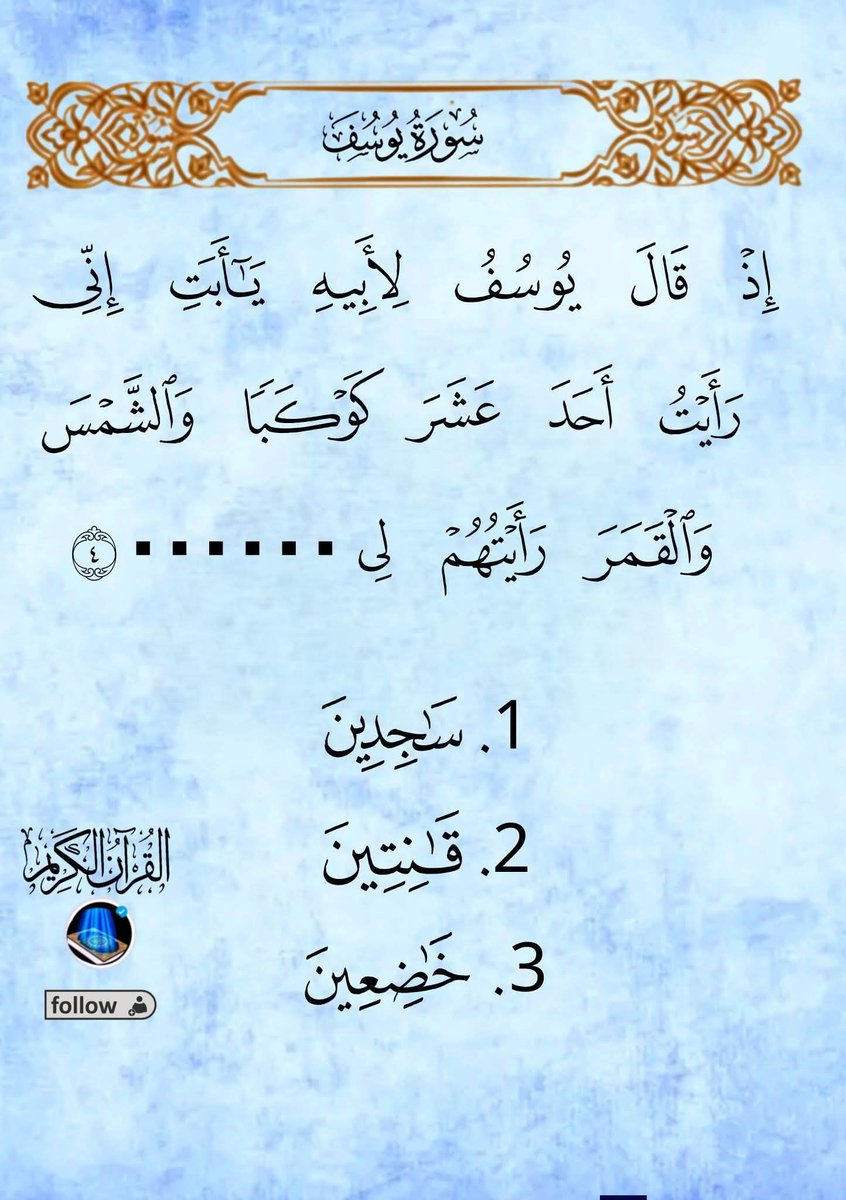 سُورَةُ يُوسُفَ
إِذۡ قَالَ يُوسُفُ لِأَبِيهِ يَـٰٓأَبَتِ إِنِّی
رَأَیۡتُ أَحَدَ عَشَرَ كَوۡكَبࣰا وَٱلشَّمۡسَ
وَٱلۡقَمَرَ رَأَیۡتُهُمۡ لِی ▪▪▪▪▪▪ ٤
1. سَـٰجِدِینَ
2. قَـٰنِتِینَ
3. خَـٰضِعِینَ
القُرآنُ الكَرِيم
follow